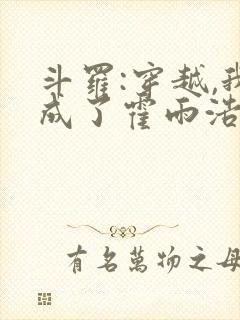 斗罗:穿越,我
成了霍雨浩
有名萬物之母